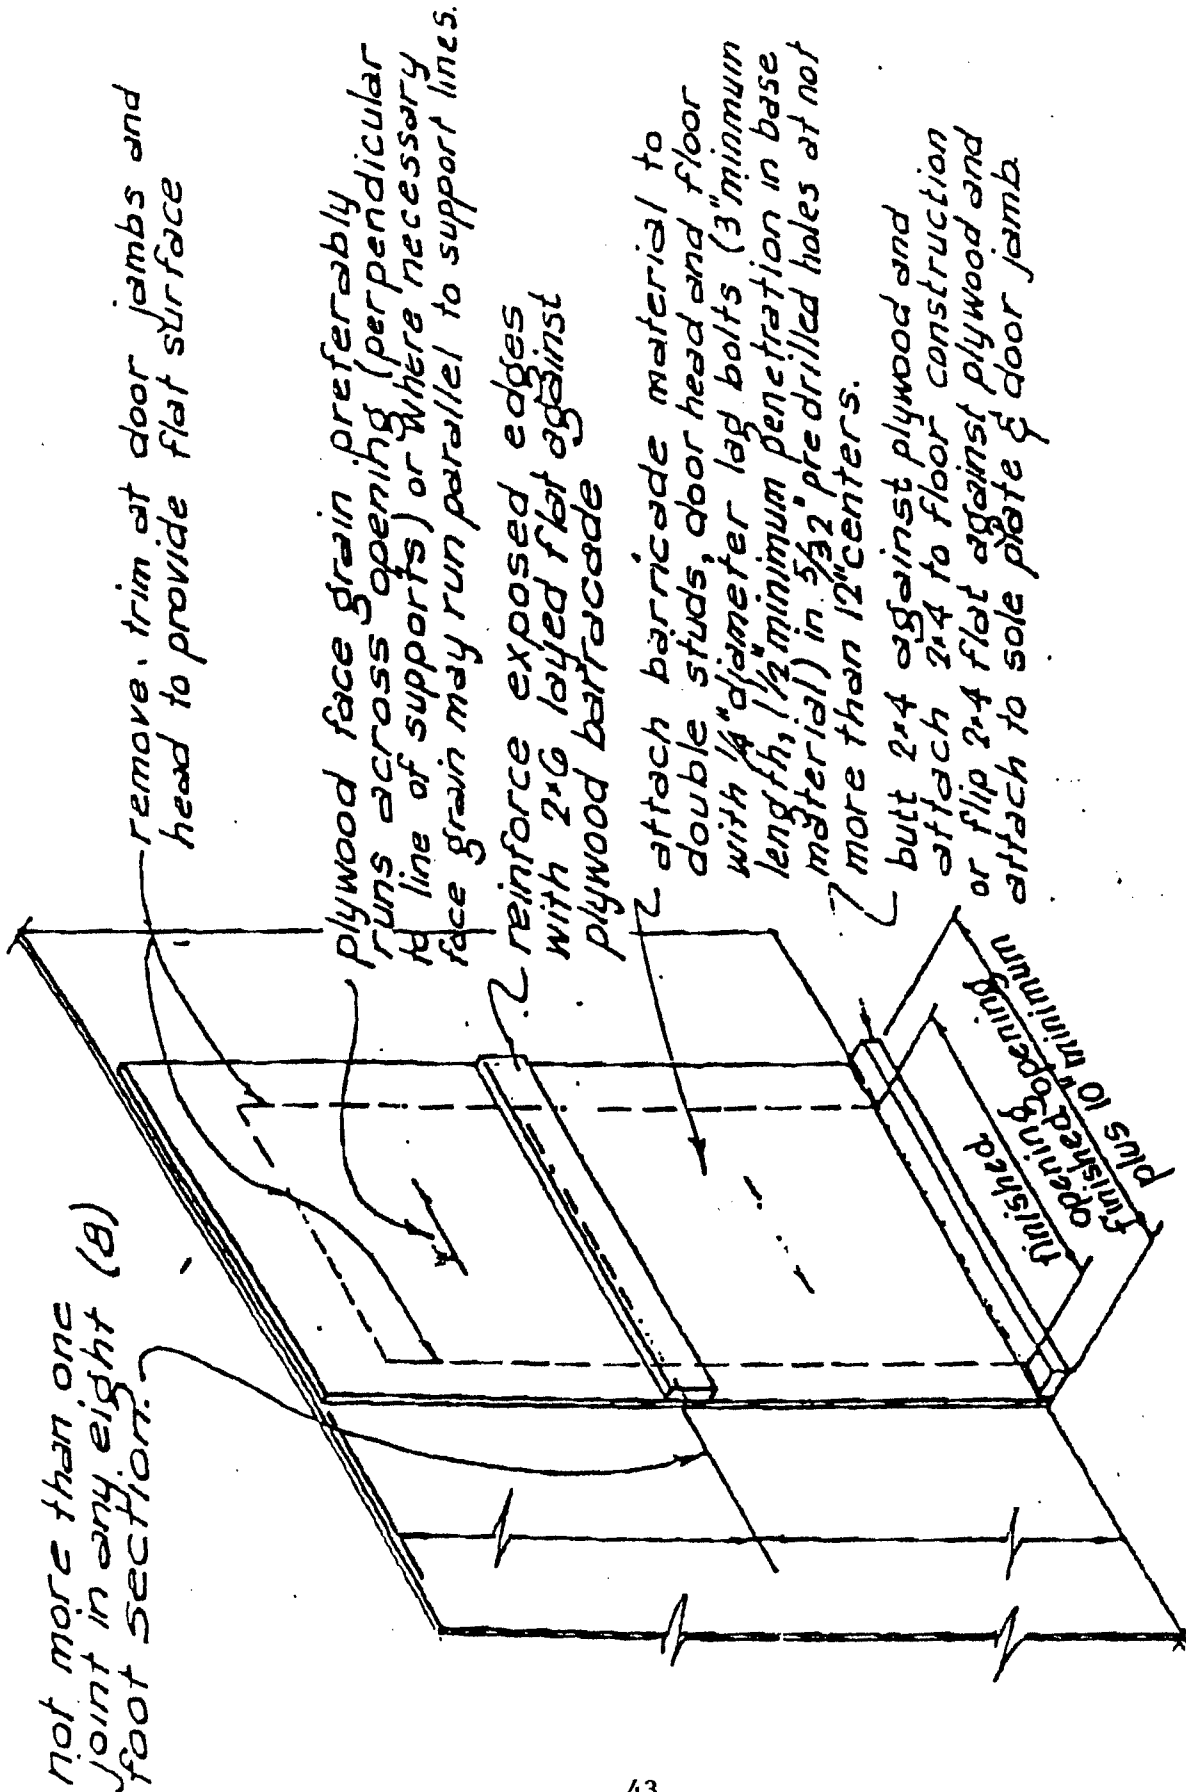 not more than one
joint in any eight (8)
foot section.
remove trim at door jambs and
head to provide flat surface
plywood face grain preferably
runs across opening (perpendicular
to line of supports) or where necessary
face grain may run parallel to support lines.
reinforce exposed edges
with 2x6 layed flat against
plywood barracade
attach barricade material to
double studs, door head and floor
with 1/4" diameter lag bolts (3" minmum
length, 1 1/2" minimum penetration in base
material) in 5/32" predrilled holes at not
more than 12" centers.
butt 2x4 against plywood and
attach 2x4 to floor construction
or flip 2x4 flat against plywood and
attach to sole plate & door jamb.
finished
opening
finished opening
plus 10" minimum
43